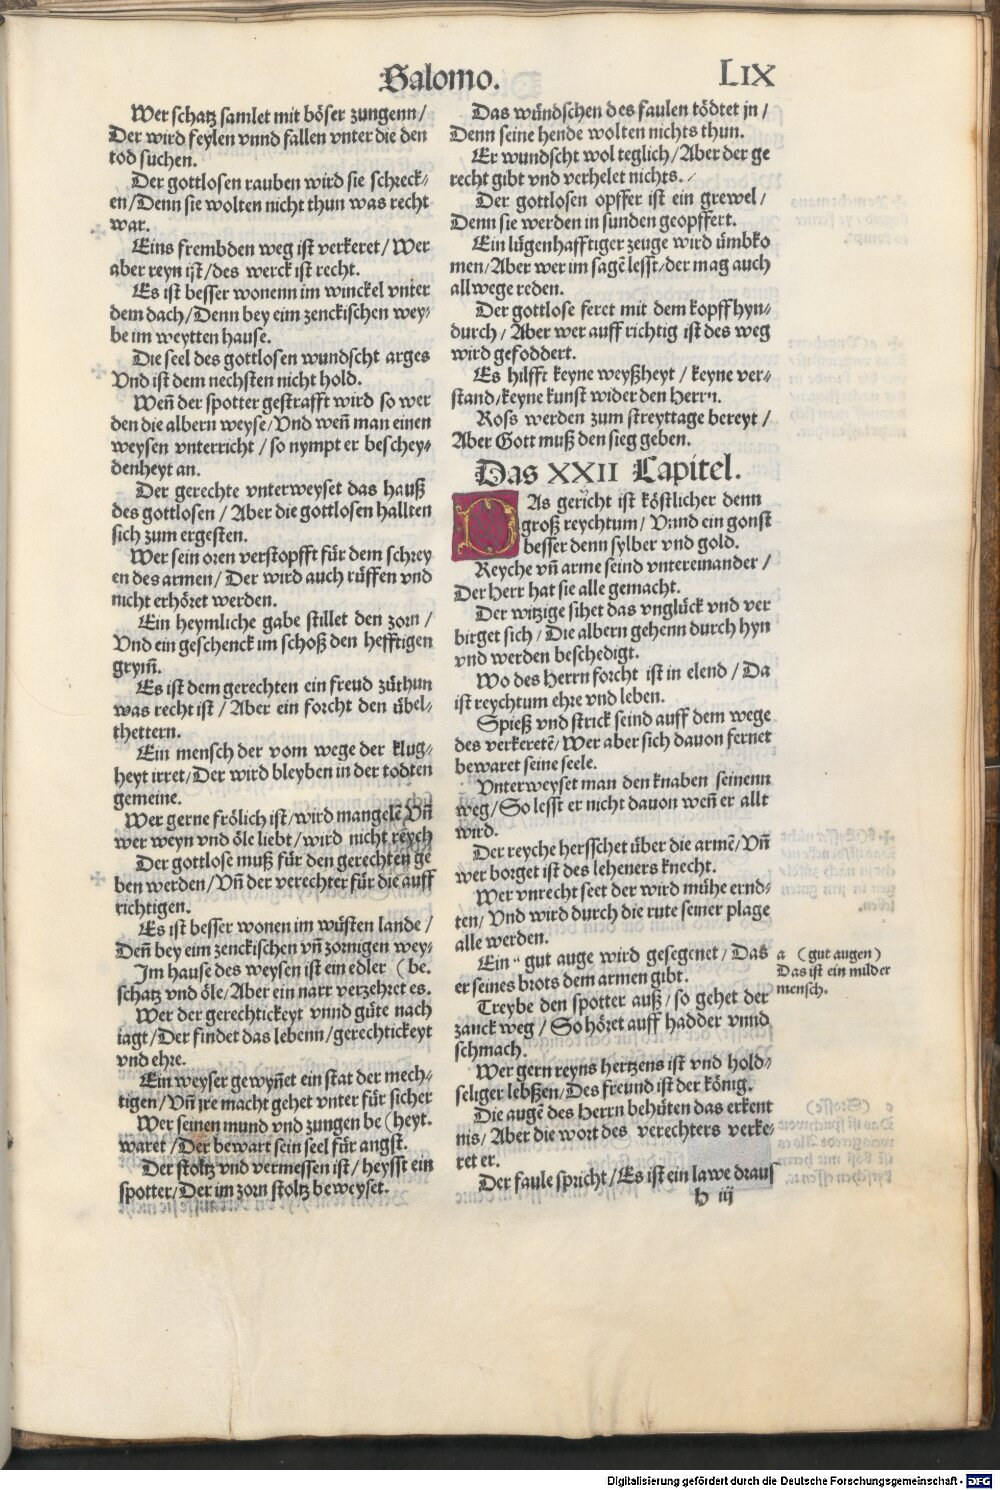 Salomo.
LIX
Wer schatz samlet mit böser zungenn/
Der wird feylen vnnd fallen vnter die den
tod suchen.
Der gottlosen rauben wird sie schreck⸗
en/Denn sie wolten nicht thun was recht
war.
Eins frembden weg ist verkeret/Wer
aber reyn ist/des werck ist recht.
Es ist besser wonenn im winckel vnter
dem dach/Denn bey eim zenckischen wey⸗
be im weytten hause.
Die seel des gottlosen wundscht arges
Vnd ist dem nechsten nicht hold.
Weñ der spotter gestrafft wird so wer
den die albern weyse/Vnd weñ man einen
weysen vnterricht/so nympt er beschey⸗
denheyt an.
Der gerechte vnterweyset das hauß
des gottlosen/Aber die gottlosen hallten
sich zum ergesten.
Wer sein oren verstopfft für dem schrey
en des armen/Der wird auch rüffen vnd
nicht erhöret werden.
Ein heymliche gabe stillet den zorn/
Vnd ein geschenck im schoß den hefftigen
grym̃.
Es ist dem gerechten ein freud zůthun
was recht ist/Aber ein forcht den übel⸗
thettern.
Ein mensch der vom wege der klug⸗
heyt irret/Der wird bleyben in der todten
gemeine.
Wer gerne frölich ist/wird mangelẽ Vñ
wer weyn vnd öle liebt/wird nicht reych
Der gottlose muß für den gerechten ge
ben werden/Vñ der verechter für die auff
richtigen.
Es ist besser wonen im wüsten lande/
Deñ bey eim zenckischen vñ zornigen wey⸗
Im hause des weysen ist ein edler (be.
schatz vnd öle/Aber ein narr verzehret es.
Wer der gerechtickeyt vnnd güte nach
iagt/Der findet das lebenn/gerechtickeyt
vnd ehre.
Ein weyser gewyñet ein stat der mech⸗
tigen/Vñ jre macht gehet vnter für sicher
Wer seinen mund vnd zungen be (heyt.
waret/Der bewart sein seel für angst.
Der stoltz vnd vermessen ist/heysst ein
spotter/Der im zorn stoltz beweyset.
Das wündschen des faulen tödtet jn/
Denn seine hende wolten nichts thun.
Er wundscht wol teglich/Aber der ge
recht gibt vnd verhelet nichts.
Der gottlosen opffer ist ein grewel/
Denn sie werden in sunden geopffert.
Ein lügenhafftiger zeuge wird ümbko
men/Aber wer im sagẽ lesst/der mag auch
allwege reden.
Der gottlose feret mit dem kopff hyn⸗
durch/Aber wer auffrichtig ist des weg
wird gefoddert.
Es hilfft keyne weyßheyt/keyne ver⸗
stand/keyne kunst wider den Herrn.
Ross werden zum streyttage bereyt/
Aber Gott muß den sieg geben.
Das XXII Capitel.
DAs gerücht ist köstlicher denn
groß reychtum/Vnnd ein gonst
besser denn sylber vnd gold.
Reyche vñ arme seind vntereinander/
Der Herr hat sie alle gemacht.
Der witzige sihet das vnglück vnd ver
birget sich/Die albern gehenn durch hyn
vnd werden beschedigt.
Wo des Herrn forcht ist in elend/Da
ist reychtum ehre vnd leben.
Spieß vnd strick seind auff dem wege
des verkeretẽ/Wer aber sich dauon fernet
bewaret seine seele.
Vnterweyset man den knaben seinenn
weg/So lesst er nicht dauon weñ er allt
wird.
Der reyche hersschet über die armẽ/Vñ
wer borget ist des leheners knecht.
Wer vnrecht seet der wird mühe ernd⸗
ten/Vnd wird durch die rute seiner plage
alle werden.
Ein ᵃ gut auge wird gesegenet/Das
er seines brots dem armen gibt.
Treybe den spotter auß/so gehet der
zanck weg/So höret auff hadder vnnd
schmach.
Wer gern reyns hertzens ist vnd hold⸗
seliger lebßen/Des freund ist der könig.
Die augẽ des Herrn behüten das erkent
nis/Aber die wort des verechters verke⸗
ret er.
Der faule spricht/Es ist ein lawe draus
h iij
a (gut augen)
Das ist ein milder
mensch.
Digitalisierung gefördert durch die Deutsche Forschungsgemeinschaft - DFG